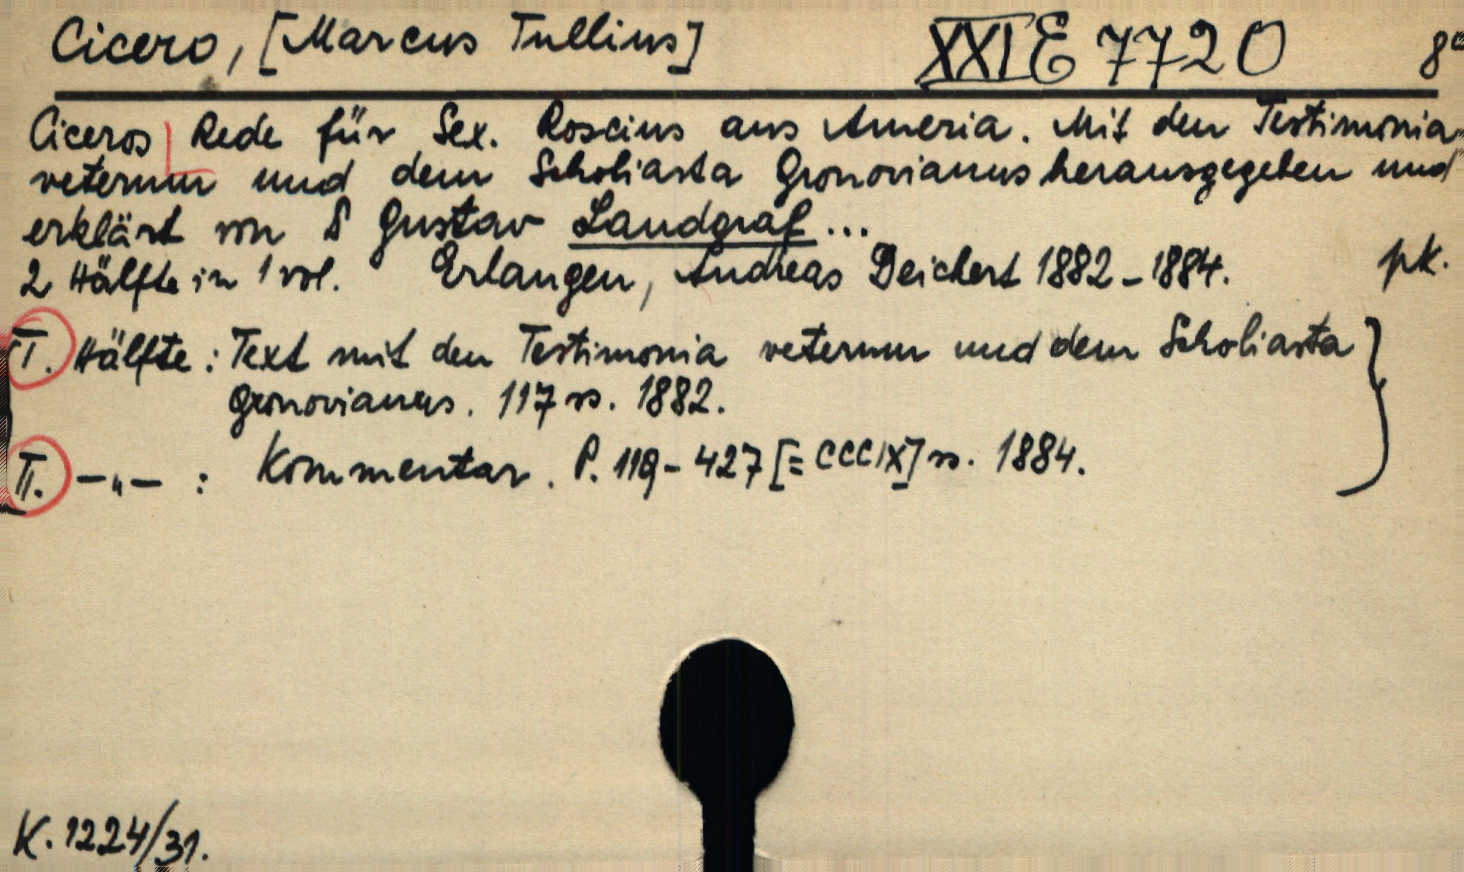 Cicero, [Marcus Tullius] XXI E 7720 8°
Ciceros Rede für Sex. Roscius aus Ameria. Mit den Testimonia
veterum und dem Scholiasta Gronovianus herausgegeben und
erklärt von Gustav Landgraf ...
2 Hälfte in 1 vol. Erlangen, Andreas Deichert 1882-1884. pk.
I. Hälfte: Text mit den Testimonia veterum und dem Scholiasta
Gronovianus. 117 ss. 1882.
II. -„- : Kommentar. P. 119-427 [= CCCIX] ss. 1884.
K. 1224/31.